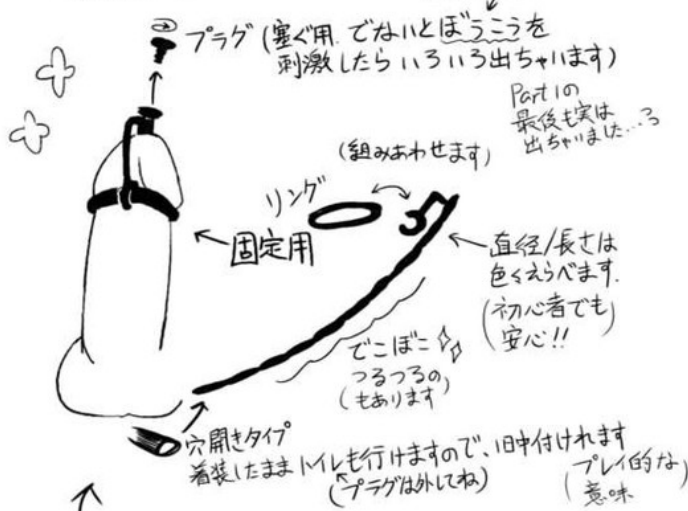 プラグ (塞ぐ用. でないとぼうこうを
刺激したら いろいろ出ちゃいます)
Part1の
最後も実は
出ちゃいました…っ
(組みあわせます)
リング
固定用
直径/長さは
色々えらべます.
(初心者でも
安心!!)
でこぼこ
つるつるの
(もあります)
穴開きタイプ
着装したまま トイレも行けますので、1日中付けれます
(プラグは外してね)
(プレイ的な
意味)